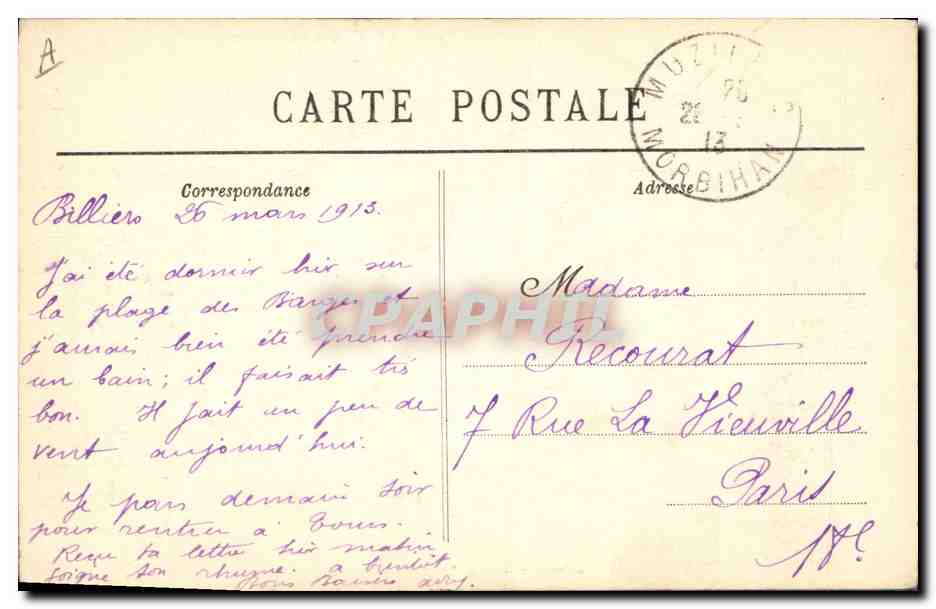 A
CARTE POSTALE
MUZILL
20
26
13
MORBIHAN
Correspondance
Adresse
Billiers 26 mars 1913.
J'ai été dormir hier sur
la plage des Barges et
j'aurais bien été prendre
un bain; il faisait très
bon. Il fait un peu de
vent aujourd'hui.
Je pars demain soir
pour rentrer à Tours.
Reçu ta lettre hier matin
soigne ton rhume. a bientôt
bons Baisers
Madame
Recourat
7 Rue La Vieuville
Paris
18e
CPAPHIL